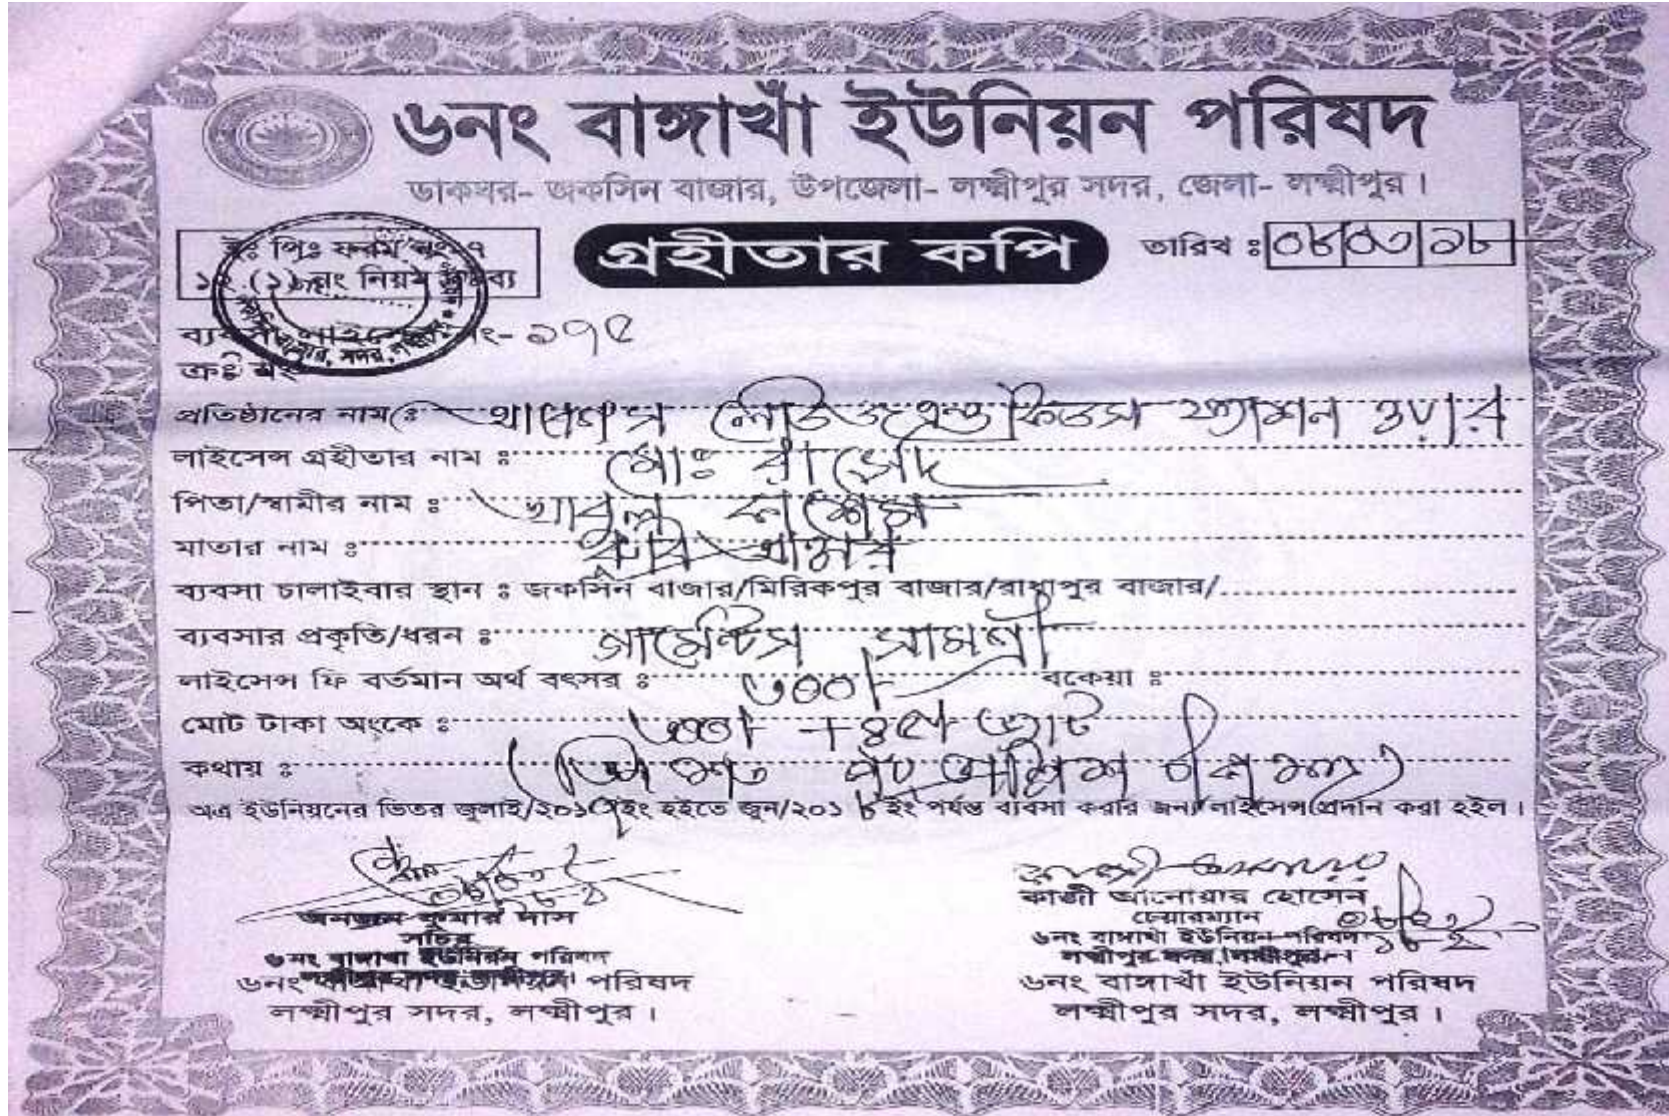 ৬নং বাঙ্গাখাঁ ইউনিয়ন পরিষদ
ডাকঘর- জকসিন বাজার, উপজেলা- লক্ষ্মীপুর সদর, জেলা- লক্ষ্মীপুর।
ইঃ পিঃ ফরম নং-৭
১২ (১) নং নিয়ম দ্রষ্টব্য
গ্রহীতার কপি
তারিখ ঃ ০৮ ০৩ ১৮
ব্যবসা লাইসেন্স নং- ১৭৫
ক্রঃ নং
প্রতিষ্ঠানের নাম ঃ লেডিজ এন্ড কিডস ফ্যাশন ওয়্যার
লাইসেন্স গ্রহীতার নাম ঃ মোঃ রাসেদ
পিতা/স্বামীর নাম ঃ আবুল কাশেম
মাতার নাম ঃ
ব্যবসা চালাইবার স্থান ঃ জকসিন বাজার/মিরিকপুর বাজার/রাধাপুর বাজার/
ব্যবসার প্রকৃতি/ধরন ঃ গার্মেন্টস সামগ্রী
লাইসেন্স ফি বর্তমান অর্থ বৎসর ঃ ৩০০/- বকেয়া ঃ
মোট টাকা অংকে ঃ ৩০০/- + ৪৫/- ভ্যাট
কথায় ঃ (তিন শত পঁয়তাল্লিশ টাকা মাত্র)
অত্র ইউনিয়নের ভিতর জুলাই/২০১৭ইং হইতে জুন/২০১৮ ইং পর্যন্ত ব্যবসা করার জন্য লাইসেন্স প্রদান করা হইল।
কুমার দাস
সচিব
৬নং বাঙ্গাখাঁ ইউনিয়ন পরিষদ
লক্ষ্মীপুর সদর, লক্ষ্মীপুর।
৬নং বাঙ্গাখাঁ ইউনিয়ন পরিষদ
লক্ষ্মীপুর সদর, লক্ষ্মীপুর।
কাজী আনোয়ার হোসেন
চেয়ারম্যান
৬নং বাঙ্গাখাঁ ইউনিয়ন পরিষদ
লক্ষ্মীপুর সদর, লক্ষ্মীপুর।
৬নং বাঙ্গাখাঁ ইউনিয়ন পরিষদ
লক্ষ্মীপুর সদর, লক্ষ্মীপুর।